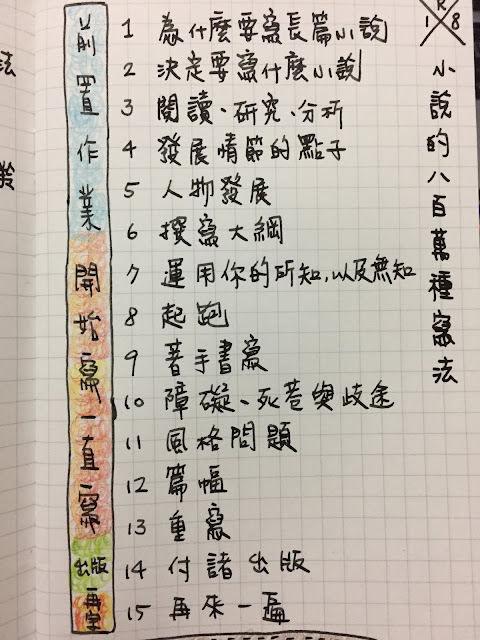 前置作業
開始寫一直寫
出版
再望
1 為什麼要寫長篇小說
2 決定要寫什麼小說
3 閱讀、研究、分析
4 發展情節的點子
5 人物發展
6 撰寫大綱
7 運用你的所知,以及無知
8 起跑
9 著手書寫
10 障礙、死巷與歧途
11 風格問題
12 篇幅
13 重寫
14 付諸出版
15 再來一遍
R
1 8
小說的八百萬種寫法
法